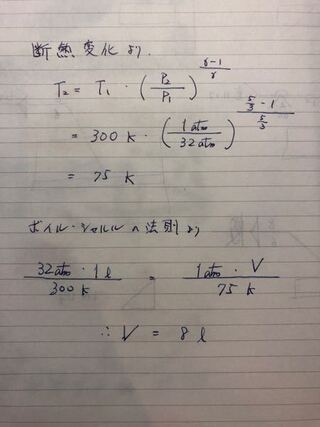 断熱変化より、
T₂ = T₁ · (P₂/P₁)^((γ-1)/γ)
= 300 K · (1atm/32atm)^((5/3 - 1)/(5/3))
= 75 K
ボイル・シャルルの法則より
32atm · 1l / 300 K = 1atm · V / 75 K
∴ V = 8 l